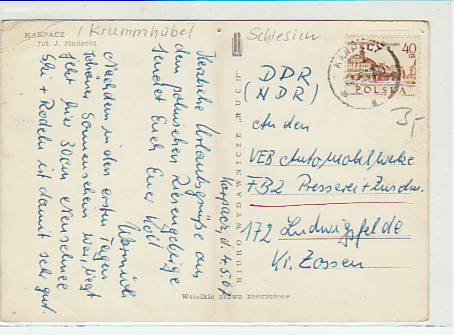 KARPACZ
fot. J. Siudecki
/ Krummhübel
Schlesien
Herzliche Urlaubsgrüße aus
dem polnischen Riesengebirge
sendet Euch Euer Koll.
Wernicke
Nachdem in den ersten Tagen
schöner Sonnenschein war, liegt
jetzt hier 30 cm Neuschnee
Ski + Rodeln ist damit sehr gut.
Karpacz, d. 4.5.67
BIURO WYDAWNICZE "RUCH"
KARPACZ
40
GR
POLSKA
3,-
DDR
(NDR)
An den
VEB Automobilwerke
FB2 Presserei + Zuschn.
172 Ludwigsfelde
Kr. Zossen
Wszelkie prawa zastrzeżone